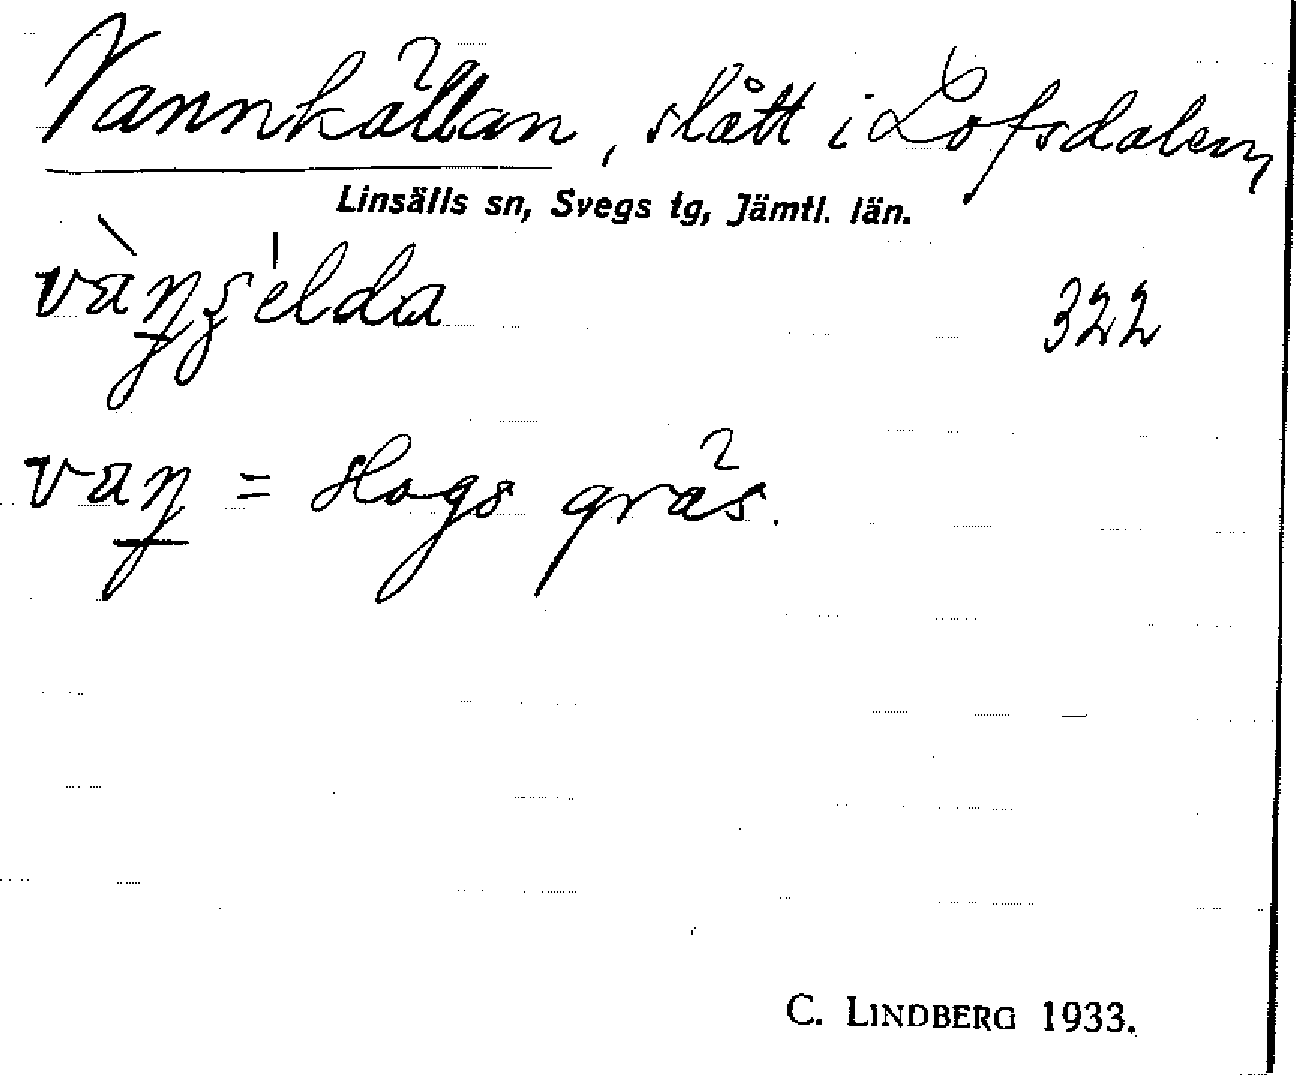 Vannkällan, slått i Lofsdalen,
Linsälls sn, Svegs tg, Jämtl. län.
322
= slags gräs.
C. LINDBERG 1933.